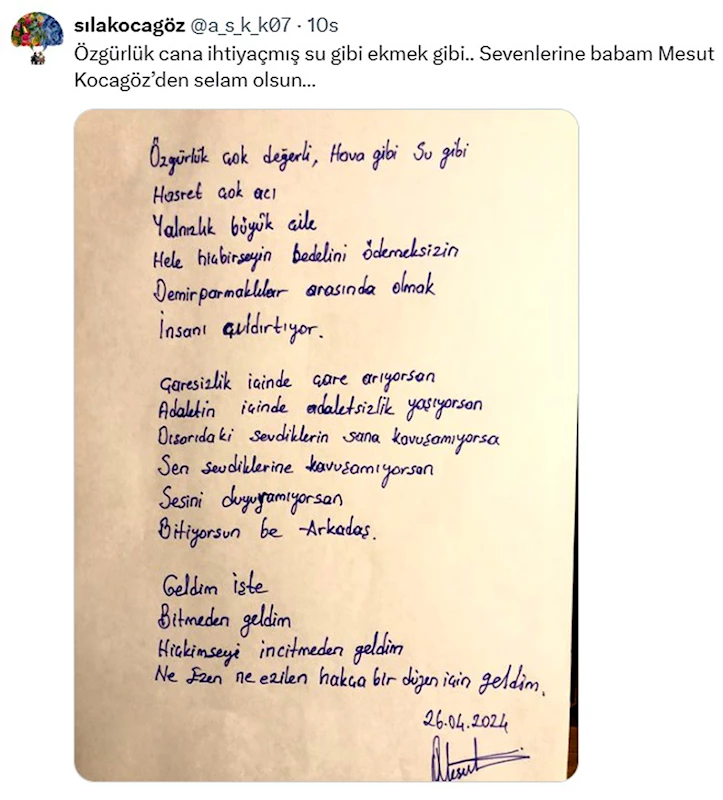 sılakocagöz @a_s_k_k07 · 10s
Özgürlük cana ihtiyaçmış su gibi ekmek gibi.. Sevenlerine babam Mesut
Kocagöz’den selam olsun...
Özgürlük çok değerli, Hava gibi Su gibi
Hasret çok acı
Yalnızlık büyük çile
Hele hiçbirşeyin bedelini ödemeksizin
Demirparmaklılar arasında olmak
İnsanı çıldırtıyor.
Çaresizlik içinde çare arıyorsan
Adaletin içinde adaletsizlik yaşıyorsan
Dışarıdaki sevdiklerin sana kavuşamıyorsa
Sen sevdiklerine kavuşamıyorsan
Sesini duyuramıyorsan
Bitiyorsun be Arkadaş.
Geldim işte
Bitmeden geldim
Hiçkimseyi incitmeden geldim
Ne Ezen ne ezilen hakça bir düzen için geldim.
26.04.2024
Mesut